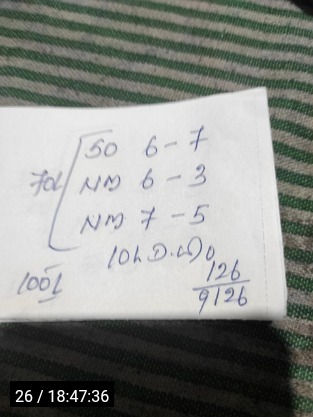 SO 6 - 7
70L NM 6 - 3
NM 7 - 5
10L
100L
126
9126
26 / 18:47:36